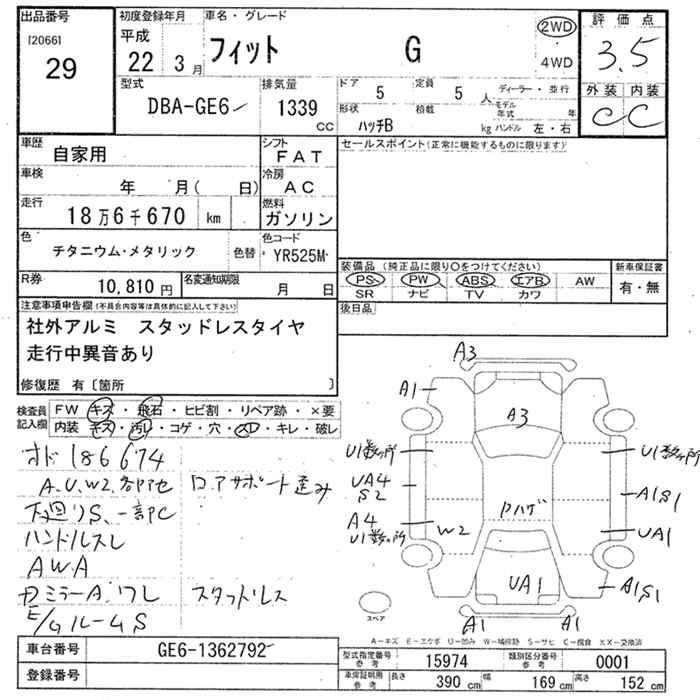 出品番号 初度登録年月 車名・グレード 2WD 評価点
[2066] 平成
29 22 3月 フィット G 4WD 3.5
型式 排気量 ドア 定員 ディーラー・並行 外装 内装
DBA-GE6 1339 cc 5 5人 モデル年式 年 C C
形状 積載
ハッチB kg ハンドル 左・右
車歴 自家用 シフト FAT セールスポイント(正常に機能するものに限ります)
車検 年 月( 日) 冷房 AC
走行 18万6千670 km 燃料 ガソリン
色 チタニウム・メタリック 色替 色コード YR525M
装備品(純正品に限り○をつけてください) 新車保証書
R券 10,810円 名変通知期限 月 日 PS PW ABS エアB AW 有・無
SR ナビ TV カワ
注意事項申告欄(不具合内容等は具体的に記入して下さい) 後日品
社外アルミ スタッドレスタイヤ
走行中異音あり
修復歴 有〔箇所 〕
検査員記入欄 FW キズ・飛石・ヒビ割・リペア跡・×要
内装 キズ・汚レ・コゲ・穴・スレ・キレ・破レ
A3
A1
A3
オド186674
U1数ヶ所 U1数ヶ所
A.U.W2.各部色 ロ.アサポート歪み
UA4
S2 Pハゲ A1S1
下廻りS、一部C
A4
U1数ヶ所 W2 UA1
ハンドルスレ
AWA
UA1 A1S1
ミラーA.ワレ スタットレス
スペア
E/gルームS
A1 A1
A-キズ E-エクボ U-凹み W-補修跡 S-サビ C-腐食 XX-交換済
車台番号 GE6-1362792
型式指定番号 参考 15974 類別区分番号 参考 0001
登録番号
車庫証明用 参考 長さ 390 cm 幅 169 cm 高さ 152 cm